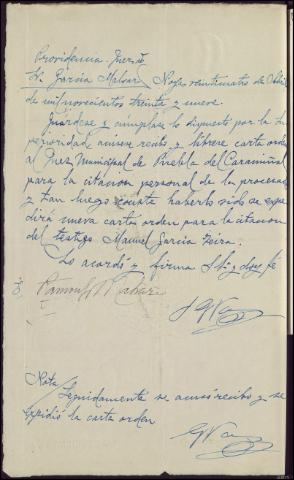 Providencia. Juez
Sr. Garcia Malvar Noya veintinueve de
de mil novecientos treinta y nueve
Guardese y cumplase lo dispuesto por la Su-
perioridad acusese recibo y librese carta orden
al Juez Municipal de Puebla del Caramiñal
para la citacion personal de los procesados
y tan luego conste haberlo sido se expe
dirá nueva carta orden para la citacion
del testigo Manuel Garcia
Lo acordó y firma S Sª y doy fé
Nota/
Seguidamente se acusó recibo y se
expidió la carta orden